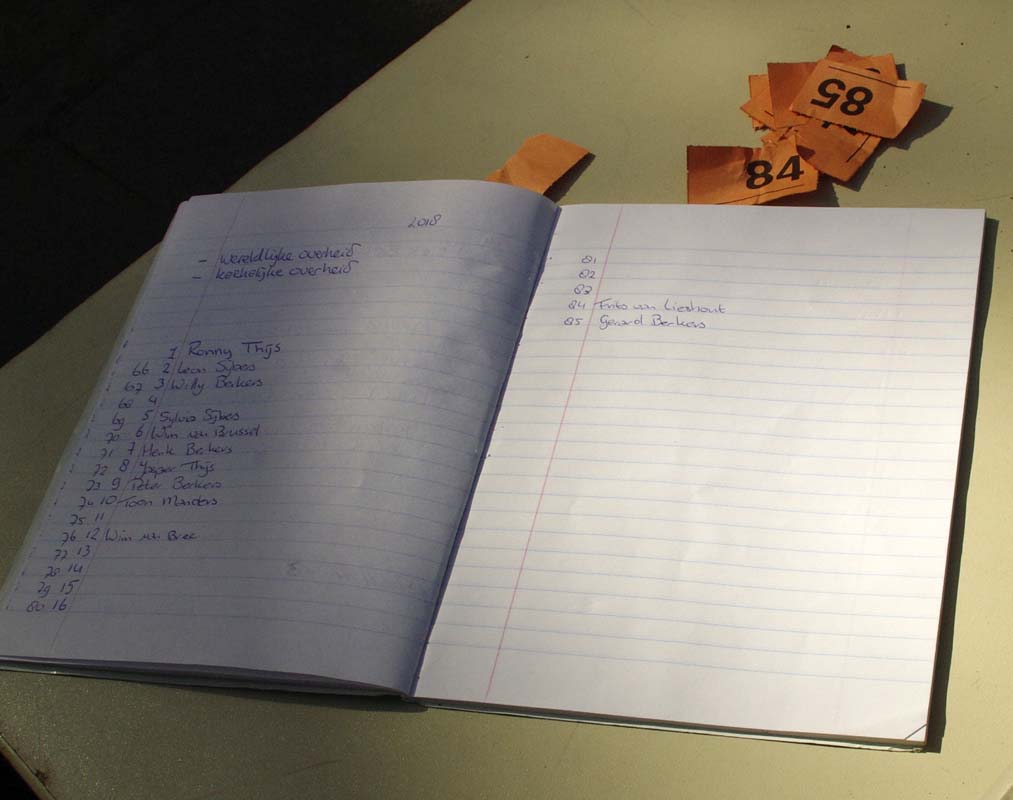 2018
- wereldlijke overheid
- kerkelijke overheid
1 Ronny Thijs
66 2 Leon Sijbers
67 3 Willy Berkers
68 4
69 5 Sylvia Sijbers
70 6 Wim van Brussel
71 7 Henk Berkers
72 8 Thijs
73 9 Peter Berkers
74 10 Toon Manders
75 11
76 12 Wim van Bree
77 13
78 14
79 15
80 16
81
82
83
84 Frits van Lieshout
85 Gerard Berkers
85
84